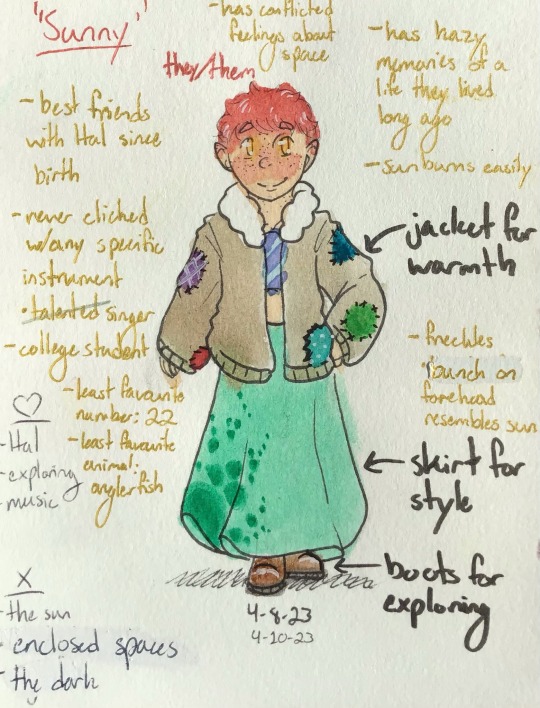 "Sunny"
they/them
- has conflicted
feelings about
space
- has hazy
memories of a
life they lived
long ago
- sunburns easily
- best friends
with Hal since
birth
- never clicked
w/any specific
instrument
• talented singer
- college student
- least favourite
number: 22
- least favourite
animal:
anglerfish
♡
- Hal
- exploring
- music
X
- the sun
- enclosed spaces
- the dark
jacket for
warmth
- freckles
bunch on
forehead
resembles sun
skirt for
style
boots for
exploring
4-8-23
4-10-23